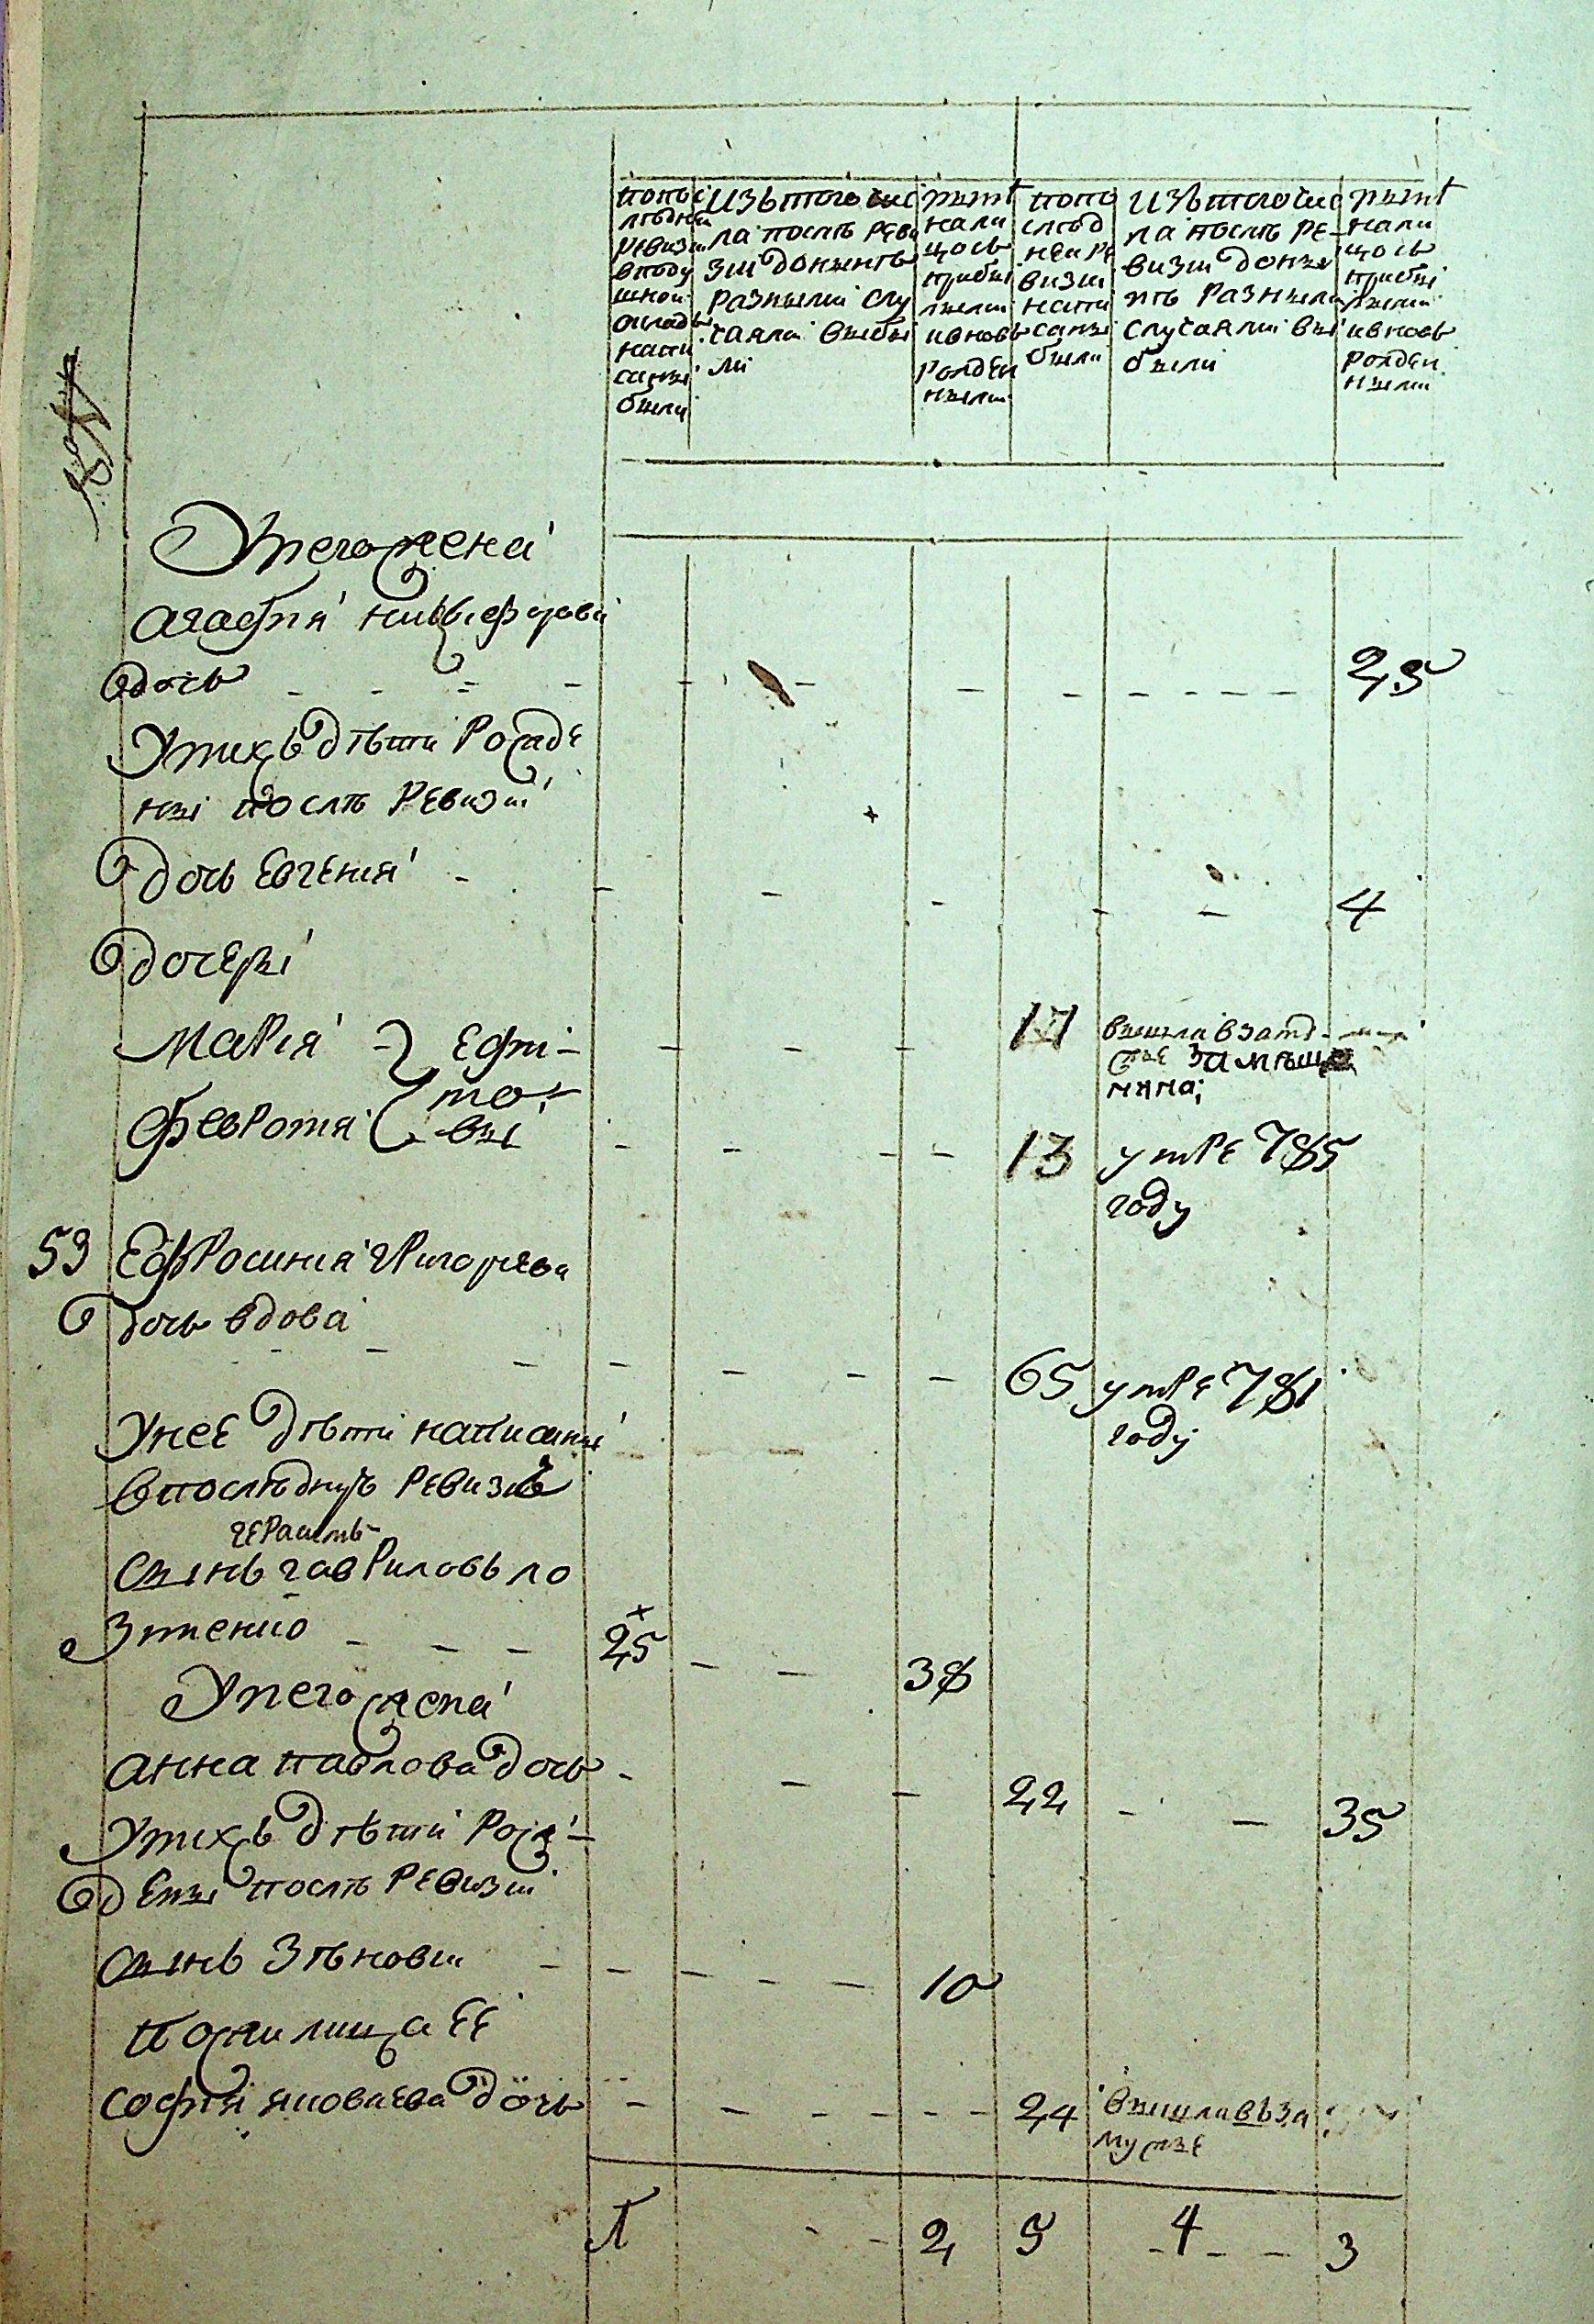 попос
лѣдней
ревизи
вподу
шной
окладъ
напи
саны
были
изътого чис
ла послѣ реви
зии донынѣ
разными слу
чаями выбы
ли
нынѣ
нали
цосъ
прибы
лыми
ивновь
рожден
ными
попо
слѣд
ней ре
визии
напи
саны
были
изътого чис
ла послѣ ре-
визии доны
нѣ разными
случаями вы
были
нынѣ
нали
цосъ
прибы
лыми
ивновь
рожден
ными
Унего жена
агафия никифорова
дочь - - - - - - - - - - - - 25
Унихъ дѣти рожде
ны послѣ ревизии
дочь евгения - - - - - - 4
дочери
мария ефи- - - - 17 вышла взамуж
тво за мѣща
нина;
февротия мо- вы - - - - 13 умре 785
году
59 ефросиния григорьева
дочь вдова - - - - - - - 65 умре 781
году
Унее дѣти написаны
впослѣдную ревизию
герасимъ
сынъ гавриловъ ло
зтенко - - - 25 - - 38
Унего жена
анна павлова дочь - - - 22 - - 35
Унихъ дѣти рож-
дены послѣ ревизии
сынъ зѣновии - - - - - - 10
Пожилица ее
софия яковлева дочь - - - - - - 24 вышла вза
мужье
1 - - 2 5 4 - - - 3